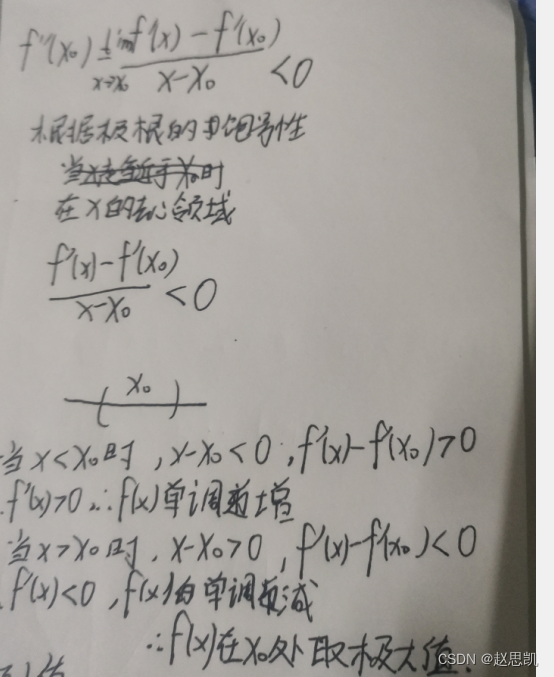 f''(x₀) = lim x→x₀ f'(x)-f'(x₀) / x-x₀ <0
根据极限的保号性
在x的去心领域
f'(x)-f'(x₀) / x-x₀ <0
( x₀ )
当x<x₀时，x-x₀<0，f'(x)-f'(x₀)>0
f'(x)>0 ∴f(x)单调递增
当x>x₀时，x-x₀>0，f'(x)-f'(x₀)<0
f'(x)<0，f(x)单调递减
∴f(x)在x₀处取极大值.
CSDN @赵思凯